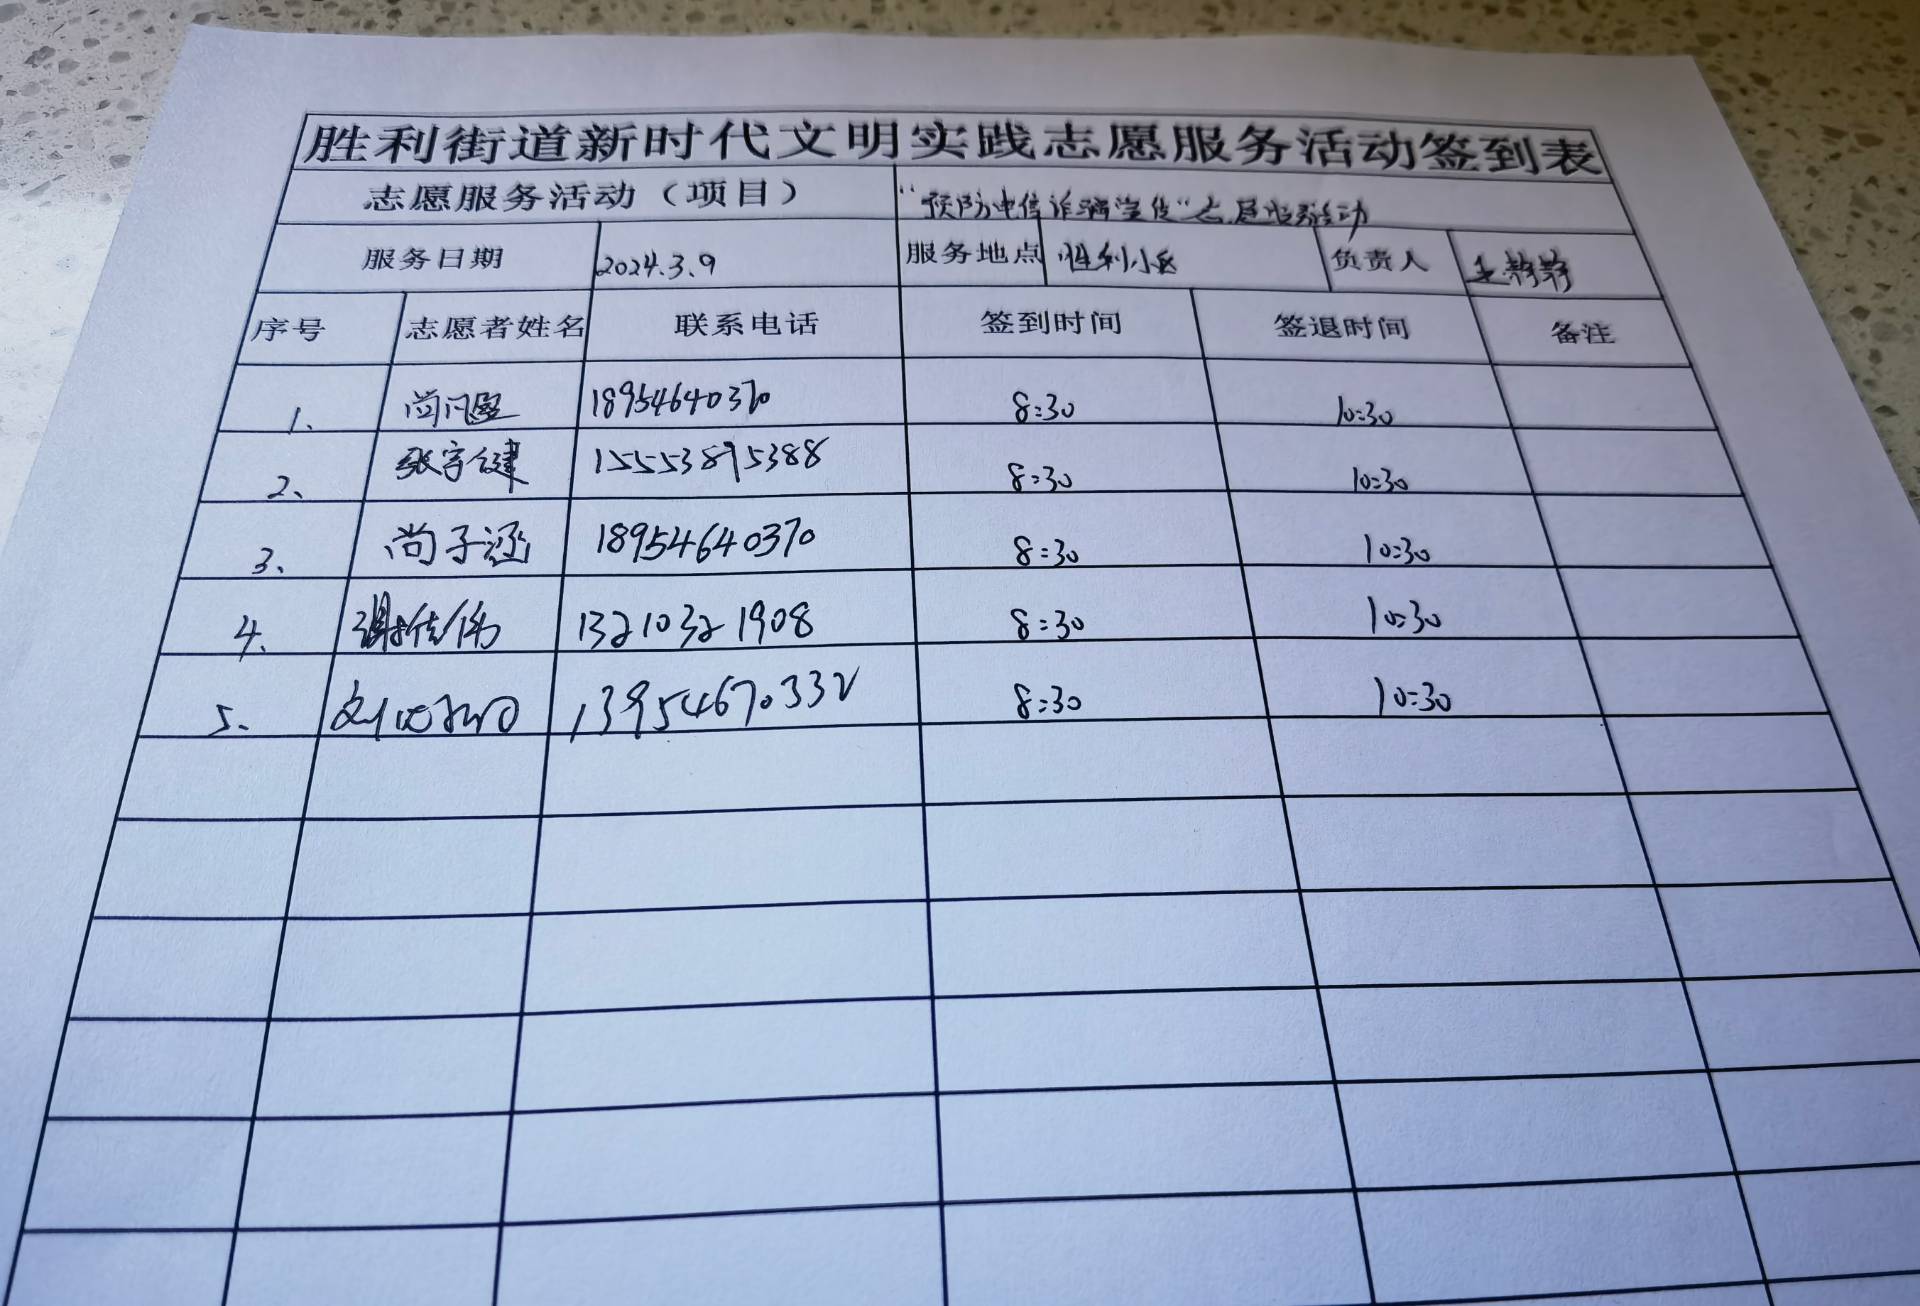 胜利街道新时代文明实践志愿服务活动签到表
志愿服务活动（项目） “预防电信诈骗宣传”志愿服务活动
服务日期 2024.3.9 服务地点 胜利小区 负责人
序号 志愿者姓名 联系电话 签到时间 签退时间 备注
1、 18954640370 8:30 10:30
2、 张宇健 15553895388 8:30 10:30
3、 尚子涵 18954640370 8:30 10:30
4、 谢佳伟 13210321908 8:30 10:30
5、 13954670332 8:30 10:30